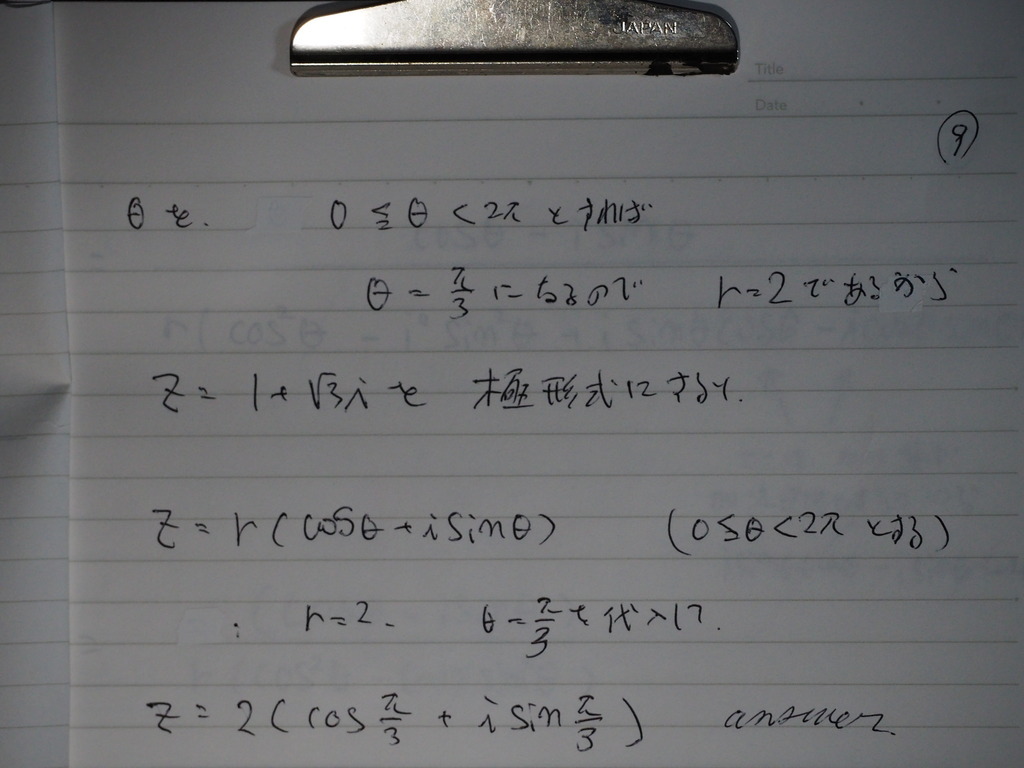 JAPAN
Title
Date
⑨
θを. 0 ≦ θ < 2π とすれば
θ = π/3 になるので r=2であるから
Z = 1+√3i を 極形式にすると.
Z = r(cosθ+isinθ) (0≦θ<2πとする)
r=2. θ=π/3を代入して.
Z = 2(cos π/3 + i sin π/3) answer.